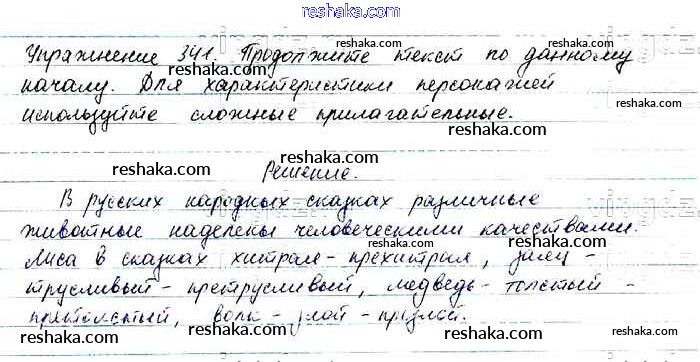 reshaka.com
Упражнение 341. Продолжите текст по данному
началу. Для характеристики персонажей
используйте сложные прилагательные.
Решение.
В русских народных сказках различные
животные наделены человеческими качествами.
Лиса в сказках хитрая-прехитрая, заяц -
трусливый - претрусливый, медведь - толстый -
претолстый, волк - злой - презлой.
reshaka.com